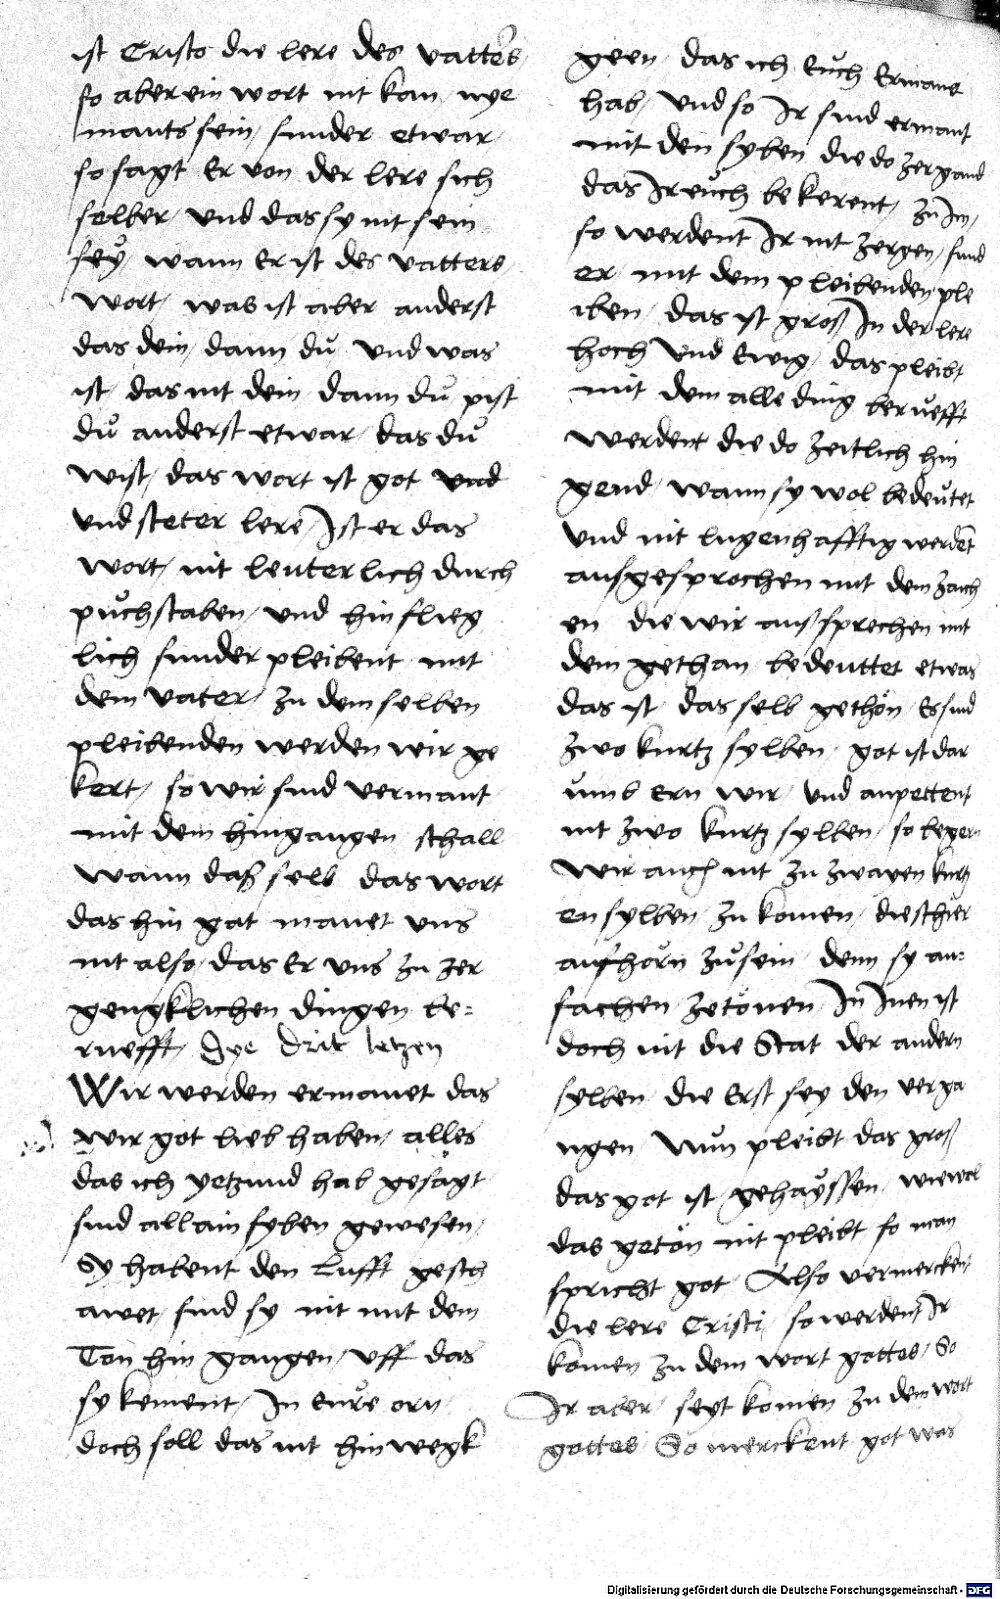 ist Cristo die lere des vatters
so aber ein wort nit kan nye
mants sein / sunder etwar /
so sagt Er von der lere sich
selber / vnd das sy nit sein
sey / wann Er ist des vatters /
wort / was ist aber anderst
das dein / dann dů vnd was
ist / das nit dein dann dů pist
dů anderst etwar / das dů
wist / das wort ist got vnd
vnd steter lere / Ist er das
wort / nit leuterlich durch
půchstaben / vnd hin flieg
lich sunder pleibent mit
dem vater / zu dem selben
pleibenden werden wir ge
kert / so wir sind vermant
mit dem hingangen schall
wann daß selb das wort
das hin gat manet vns
nit also / das Er vns zu zer
gengklichen dingen be=
ruefft / Dye drit letzen
Wir werden ermanet das
wir got lieb haben / alles
das ich yetzund hab gesagt
sind allain syben gewesen /
Sy habent den Lufft gesch
awet / sind sy nit mit dem
Ton hin gangen / vff das
sy kement / In eure orn
doch soll das nit hin wegk
geen / das ich Eůch Ermane
hab / vnd so Ir sind ermant
mit den syben die do zergand
das Ir eůch bekerent / zů Im /
so werdent Ir nit zergen / sund
er mit dem pleibenden ple
iben / das ist groß In der lere
hoch vnd Ewig / das pleibt
mit dem alle ding berůefft
werdent die do zeitlich hin
gend / wann sy wol bedeůtet
vnd nit lugenhafftig werdent
ausgesprochen mit dem zaich
en die wir aussprechen mit
dem gethan bedeuttet etwas
das ist das selb gethön / Es sind
zwo kurtz sylben / got ist dar
vmb ern wir / vnd anpettent
nit zwo kurtz sylben / so begern
wir auch nit zu zwayen kurtz
en sylben / zu komen / die schier
aufhörn zů sein / denn sy an=
fachen zetönen / In Inen ist
doch nit die Stat der andern
sylben die Erst sey den verga
ngen Nůn pleibt das groß
das got ist gehaÿssen / wiewol
das getön nit pleibt so man
spricht got / Also vermercken
die lere Cristi / so werdent Ir
komen zu dem wort gottes / So
Ir aber / seyt komen zu dem wort
gottes / So merckent got was
Digitalisierung gefördert durch die Deutsche Forschungsgemeinschaft - DFG